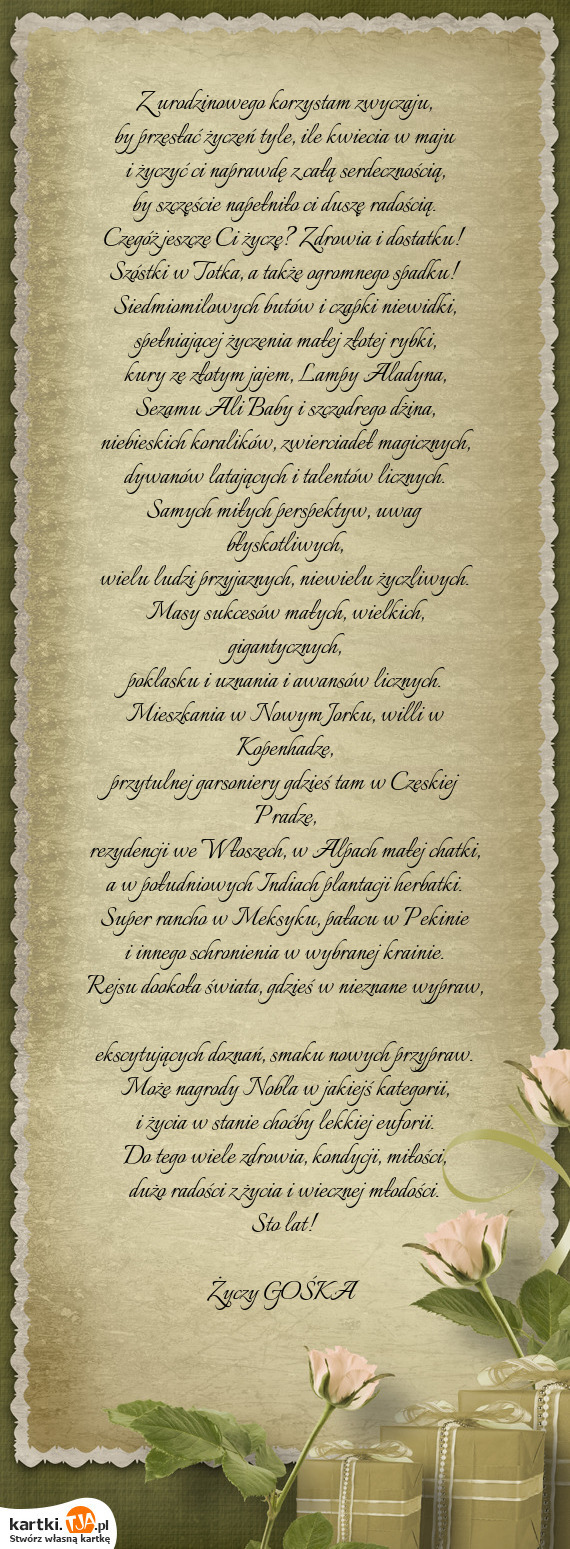 Z urodzinowego korzystam zwyczaju,
by przesłać życzeń tyle, ile kwiecia w maju
i życzyć ci naprawdę z całą serdecznością,
by szczęście napełniło ci duszę radością.
Czegóż jeszcze Ci życzę? Zdrowia i dostatku!
Szóstki w Totka, a także ogromnego spadku!
Siedmiomilowych butów i czapki niewidki,
spełniającej życzenia małej złotej rybki,
kury ze złotym jajem, Lampy Aladyna,
Sezamu Ali Baby i szczodrego dżina,
niebieskich koralików, zwierciadeł magicznych,
dywanów latających i talentów licznych.
Samych miłych perspektyw, uwag
błyskotliwych,
wielu ludzi przyjaznych, niewielu życzliwych.
Masy sukcesów małych, wielkich,
gigantycznych,
poklasku i uznania i awansów licznych.
Mieszkania w Nowym Jorku, willi w
Kopenhadze,
przytulnej garsoniery gdzieś tam w Czeskiej
Pradze,
rezydencji we Włoszech, w Alpach małej chatki,
a w południowych Indiach plantacji herbatki.
Super rancho w Meksyku, pałacu w Pekinie
i innego schronienia w wybranej krainie.
Rejsu dookoła świata, gdzieś w nieznane wypraw,
ekscytujących doznań, smaku nowych przypraw.
Może nagrody Nobla w jakiejś kategorii,
i życia w stanie choćby lekkiej euforii.
Do tego wiele zdrowia, kondycji, miłości,
dużo radości z życia i wiecznej młodości.
Sto lat!
Życzy GOŚKA
kartki.TJA.pl
Stwórz własną kartkę